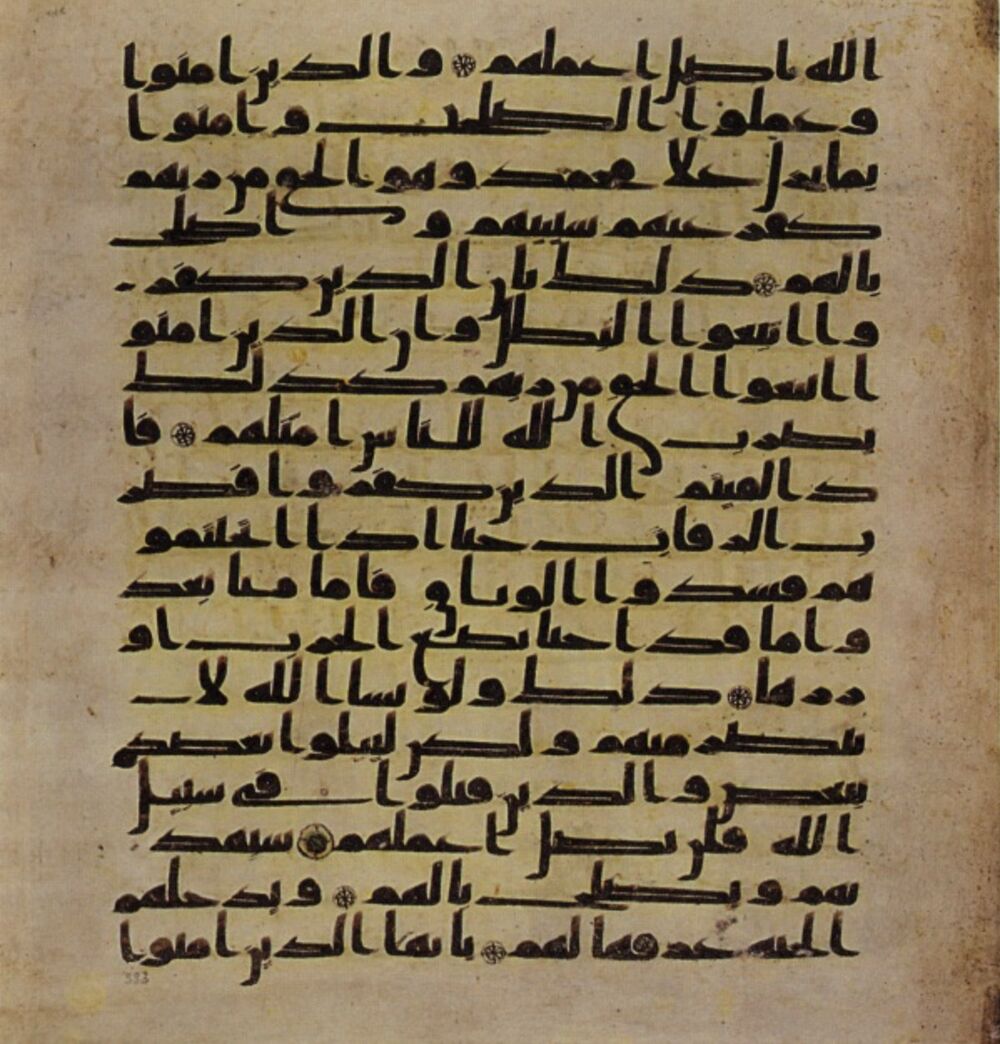 الله اضل اعملهم ۝ والذين امنوا
وعملوا الصلحت وامنوا
بما نزل علا محمد وهو الحق من ربهم
كفر عنهم سيئتهم واصلح
بالهم ۝ ذلك بان الذين كفر
وا اتبعوا البطل وان الذين امنو
ا اتبعوا الحق من ربهم كذلك
يضرب الله للناس امثلهم ۝ فا
ذا لقيتم الذين كفروا فضر
ب الرقاب حتا اذا اثخنتمو
هم فشدوا الوثاق فاما منا بعد
واما فدا حتا تضع الحرب او
زرها ۝ ذلك ولو يشا الله لا
نتصر منهم ولكن ليبلوا بعضكم
ببعض والذين قتلوا في سبيل
الله فلن يضل اعملهم ۝ سيهد
يهم ويصلح بالهم ۝ ويدخلهم
الجنة عرفها لهم ۝ يايها الذين امنوا